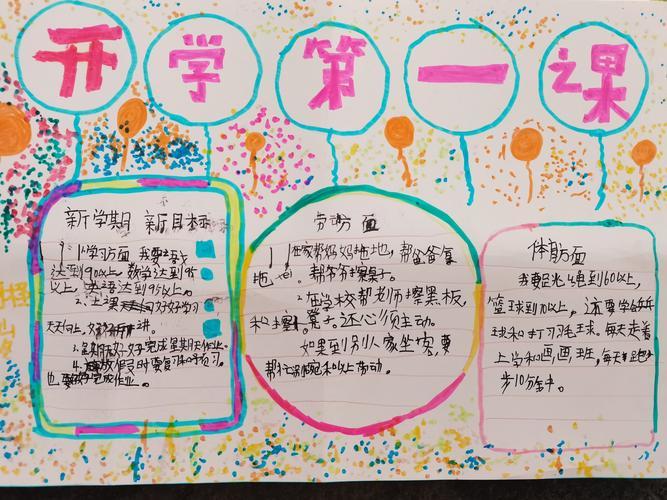 开学第一课
新学期 新目标
1. 学习方面 我要语
达到90以上，数学达到95
以上，英语达到95以上。
2. 上课 好好学习
天天向上， 讲。
3. 星期六好好完成星期天作业。
4. 放假 时要复习和预习。
也要 完成作业。
劳动方面
1 在家帮妈妈拖地，帮爸爸复
地 。帮爷爷擦桌子。
2. 在学校帮老师擦黑板，
和擦 凳子。还必须主动。
如果到别人家坐客，要
帮忙 劳动。
体育方面
我要足光 绳到60以上，
篮球到10以上，还要学乒乓
球和打羽毛球。每天走着
上学和画画班，每天 跑
步10分钟。